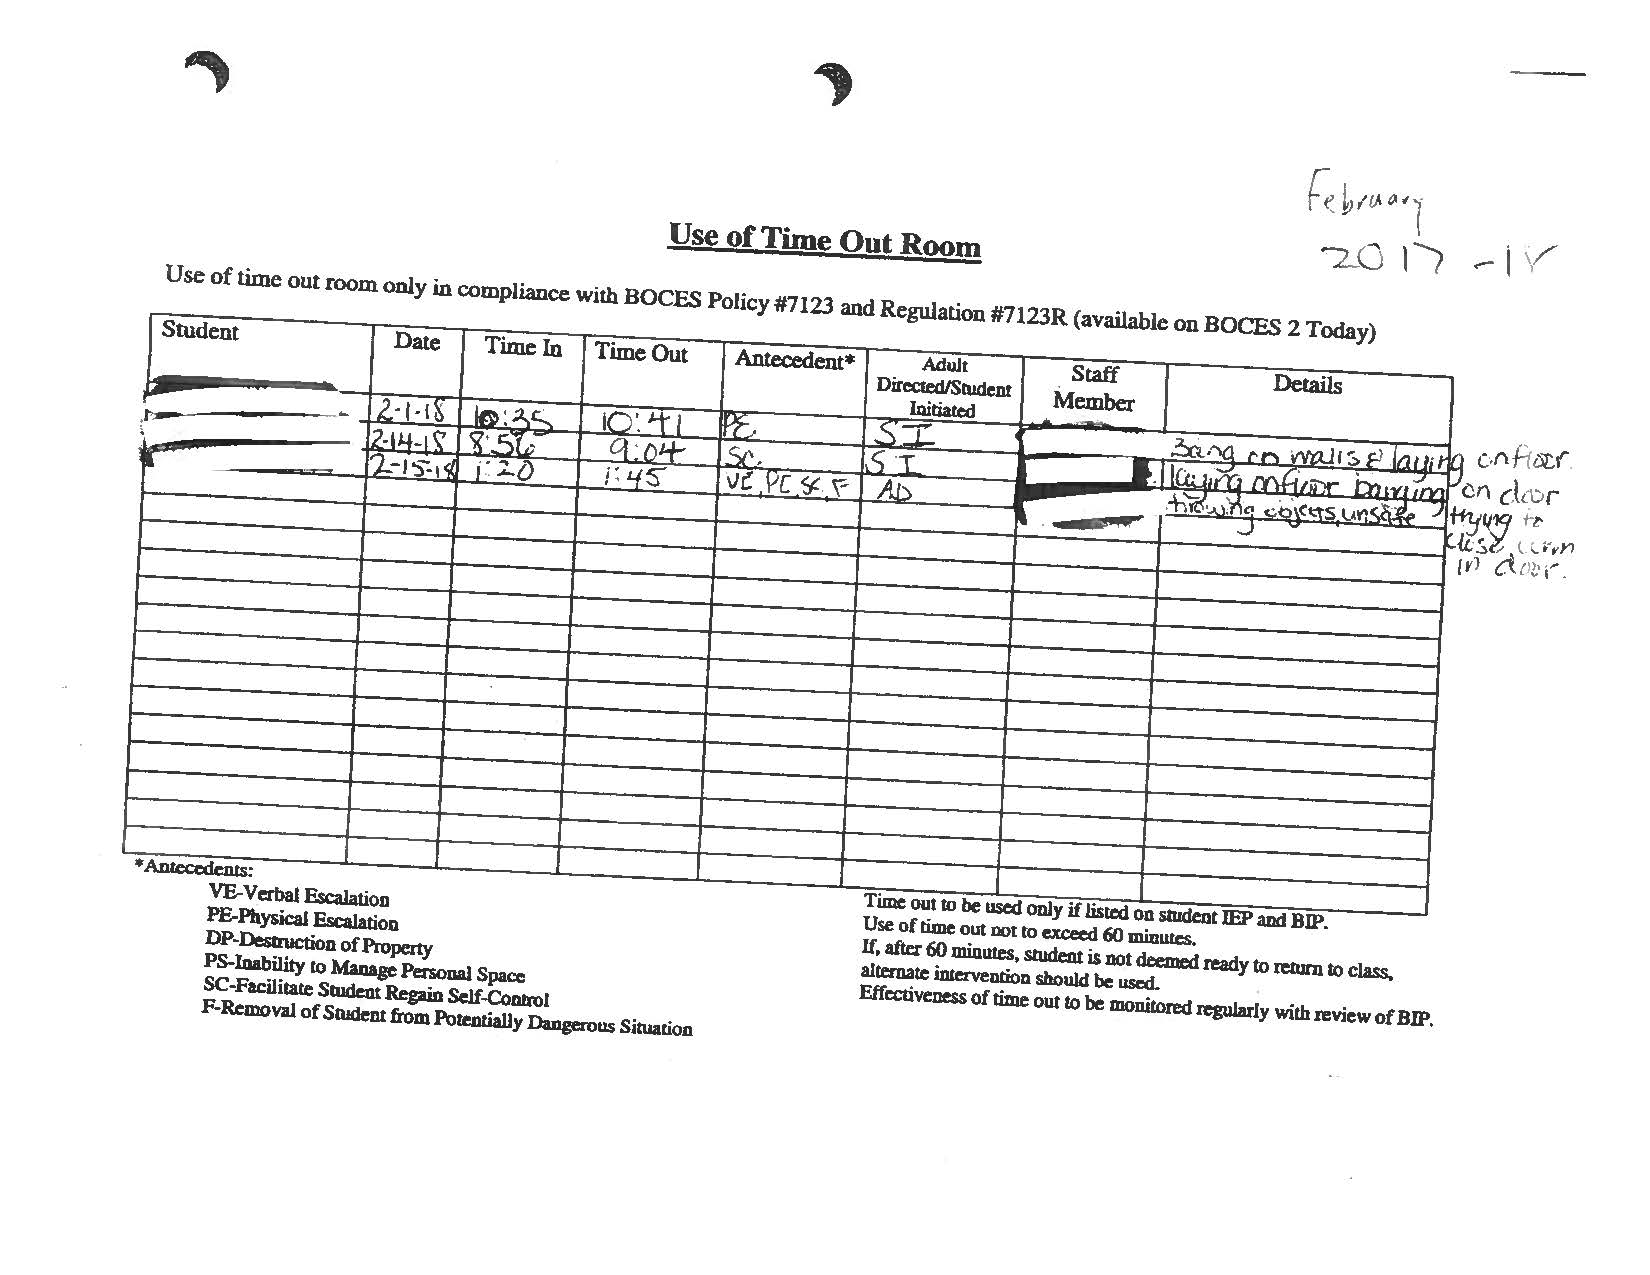 February
2017-18
Use of Time Out Room
Use of time out room only in compliance with BOCES Policy #7123 and Regulation #7123R (available on BOCES 2 Today)
Student Date Time In Time Out Antecedent* Adult Directed/Student Initiated Staff Member Details
2-1-18 10:35 10:41 PE. SI Bang on walls & laying on floor.
2-14-18 8:56 9:04 SC. SI laying on floor banging on door
2-15-18 1:20 1:45 VE, PE, SC, F AD throwing objects, unsafe trying to
close
in door.
*Antecedents:
VE-Verbal Escalation
PE-Physical Escalation
DP-Destruction of Property
PS-Inability to Manage Personal Space
SC-Facilitate Student Regain Self-Control
F-Removal of Student from Potentially Dangerous Situation
Time out to be used only if listed on student IEP and BIP.
Use of time out not to exceed 60 minutes.
If, after 60 minutes, student is not deemed ready to return to class,
alternate intervention should be used.
Effectiveness of time out to be monitored regularly with review of BIP.